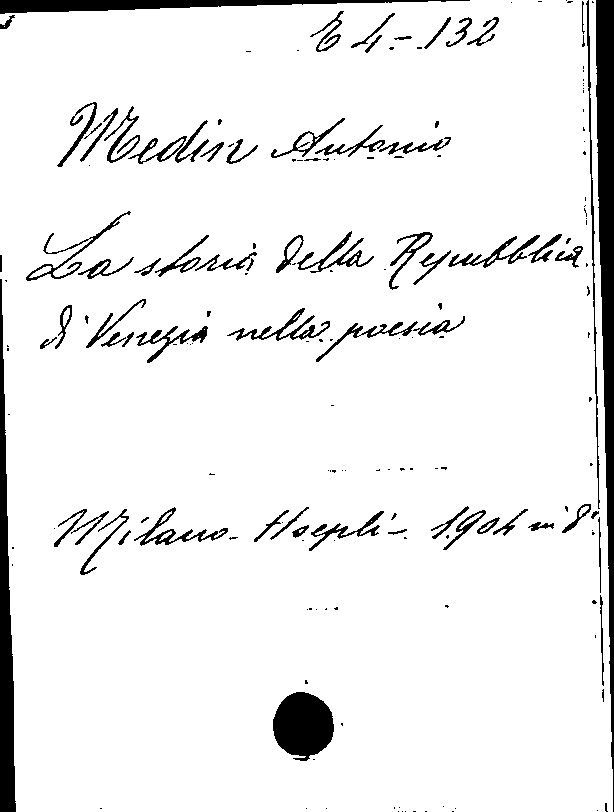 E 4 - 132
Medin Antonio
La storia della Repubblica
di Venezia nella poesia
Milano - Hoepli - 1904 in 8°